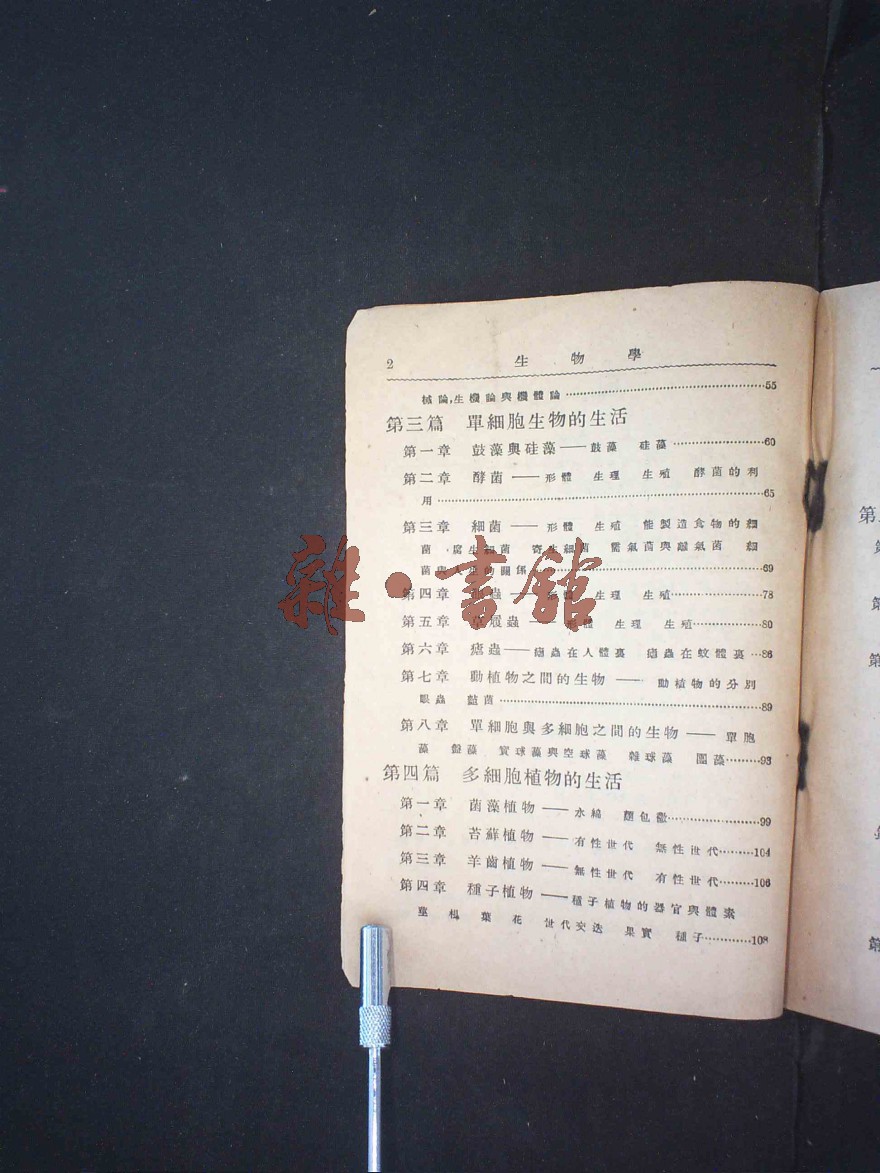 2 生物學
械論,生機論與機體論……55
第三篇 單細胞生物的生活
第一章 鼓藻與硅藻——鼓藻 硅藻……60
第二章 酵菌——形體 生理 生殖 酵菌的利
用……65
第三章 細菌——形體 生殖 能製造食物的細
菌 腐生細菌 寄生細菌 需氣菌與 氣菌 細
菌與人生的關係……69
第四章 蟲——形體 生理 生殖……78
第五章 草履蟲——形體 生理 生殖……80
第六章 瘧蟲——瘧蟲在人體裏 瘧蟲在蚊體裏…86
第七章 動植物之間的生物——動植物的分別
眼蟲 菌……89
第八章 單細胞與多細胞之間的生物——單胞
藻 盤藻 實球藻與空球藻 雜球藻 團藻……93
第四篇 多細胞植物的生活
第一章 菌藻植物——水綿 麵包黴……99
第二章 苔蘚植物——有性世代 無性世代……104
第三章 羊齒植物——無性世代 有性世代……106
第四章 種子植物——種子植物的器官與體素
莖 根 葉 花 世代交迭 果實 種子……108
雜·書館
第
第
第
第
第